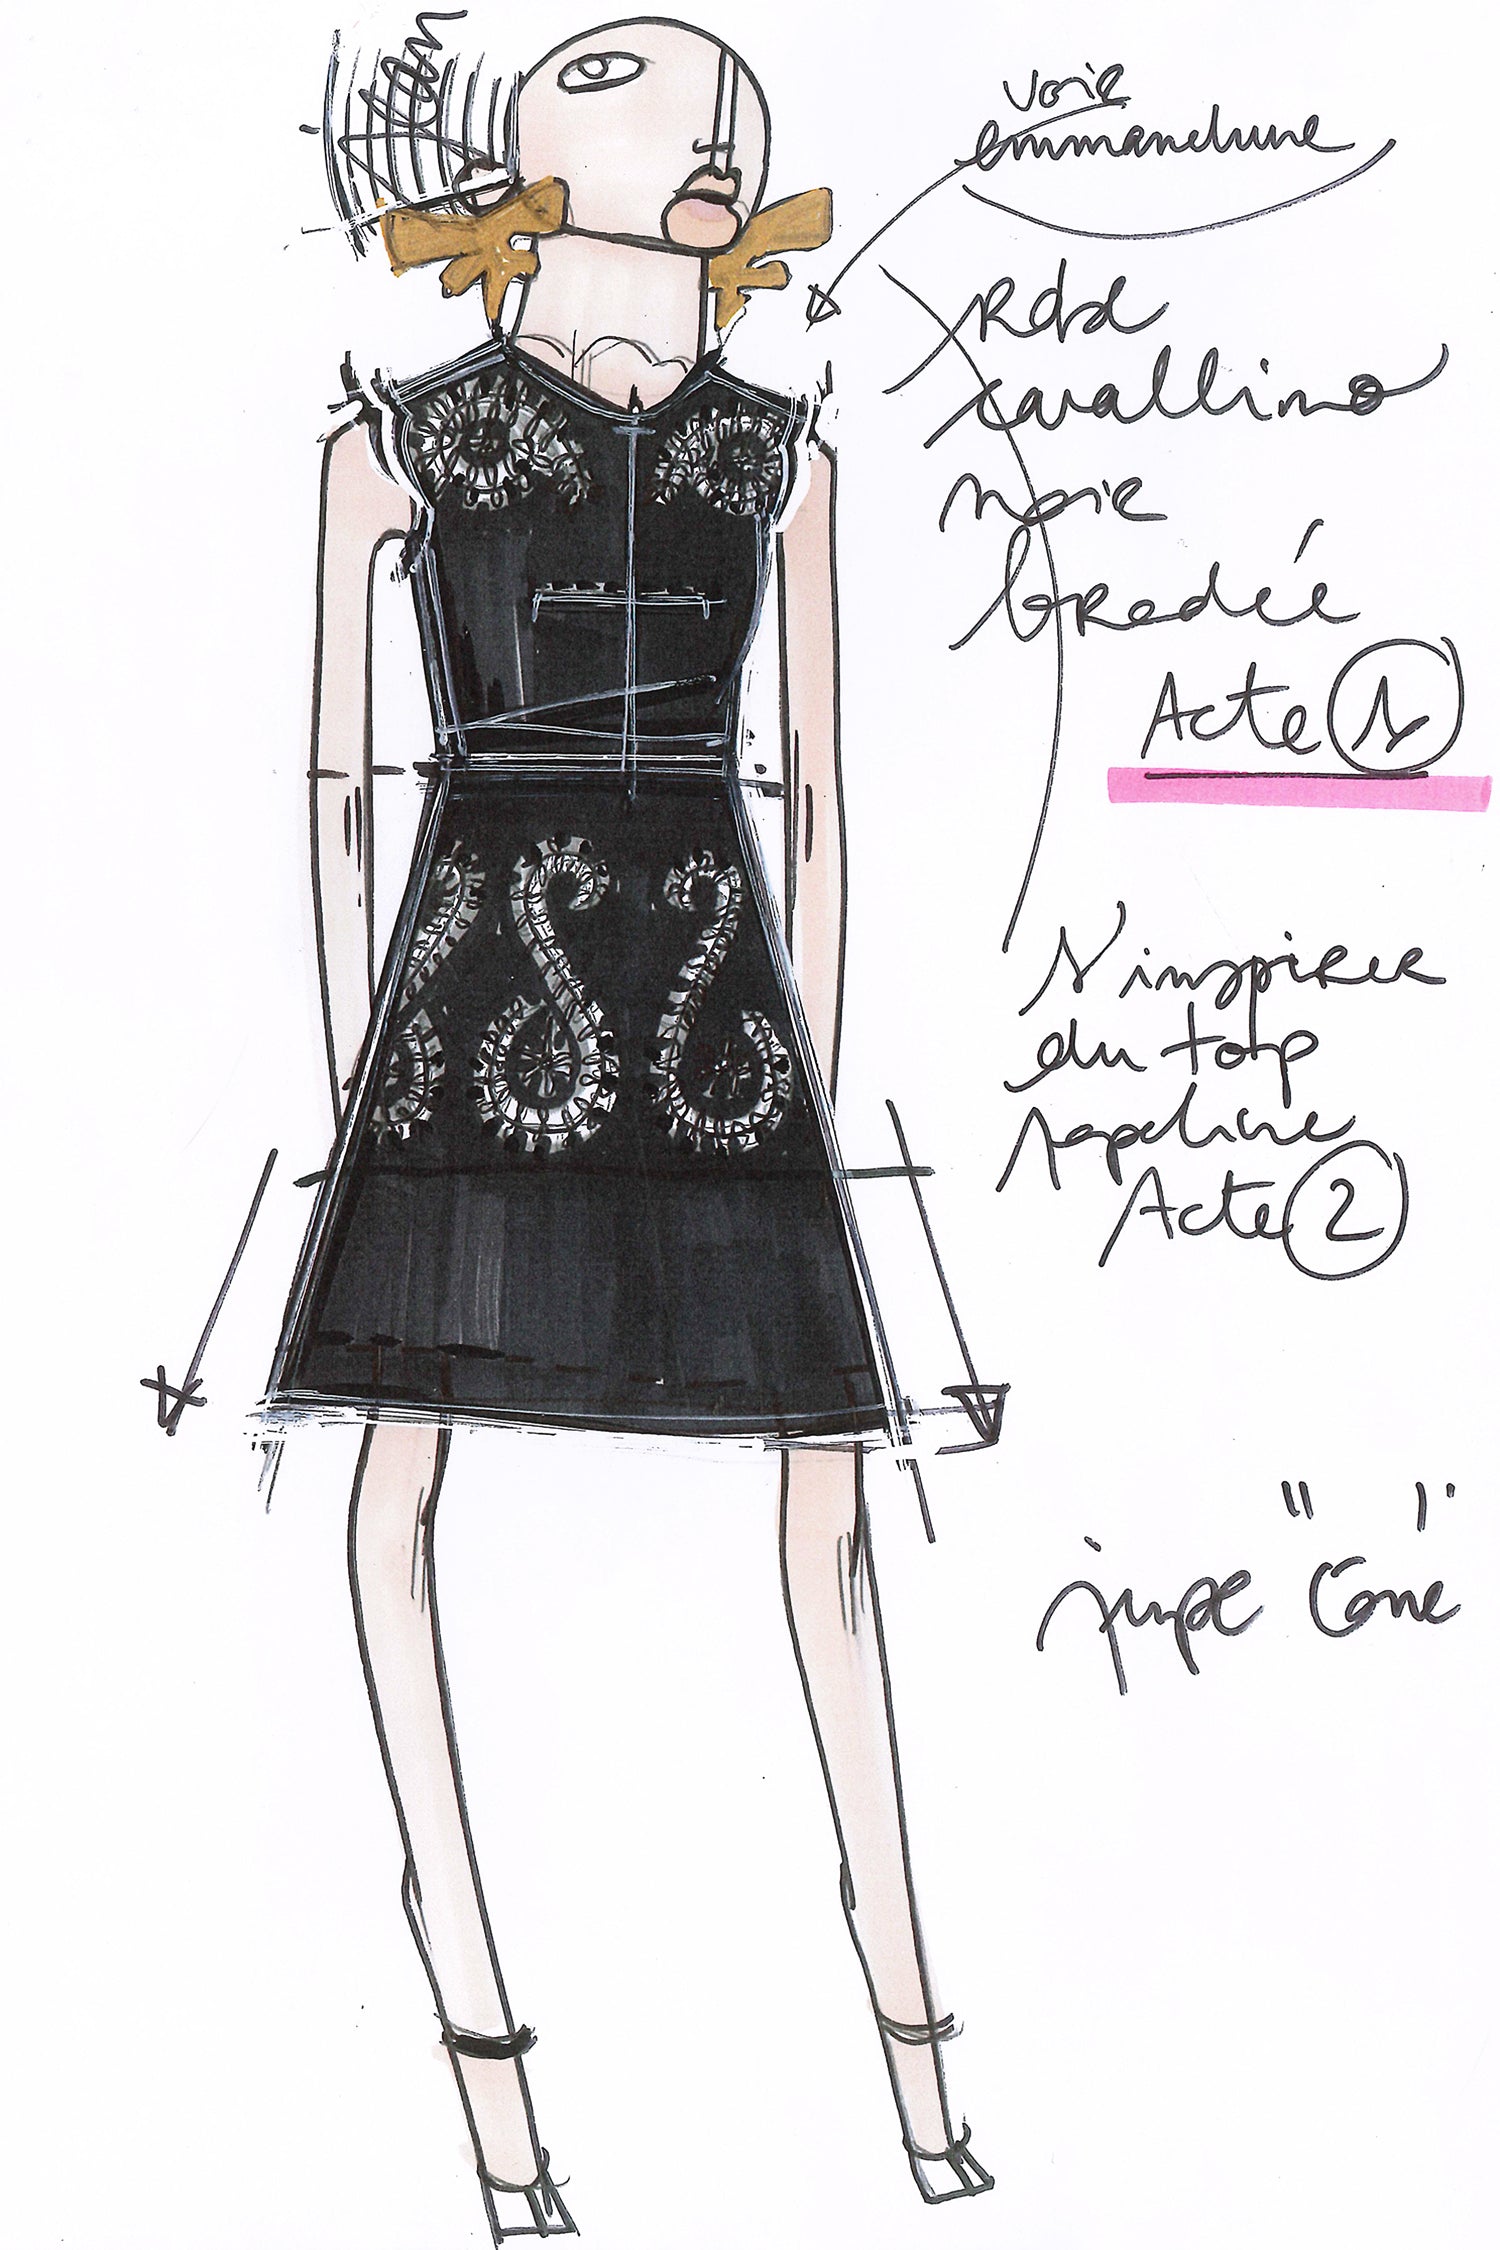 voir
emmanchure
Robe
cavallino
noir
brodée
Acte 1
S'inspirer
du top
popeline
Acte 2
jupe "Cône"